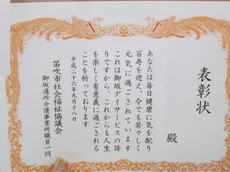 表彰状
殿
あなたは毎日健康に気を配り
百寿を迎え、今でも若々しく
元気に過ごされています
これは御坂デイサービスの誇
りですから、これからも人生
を楽しく有意義に過ごされる
ことを祈っております
平成二十六年九月十八日
笛吹市社会福祉協議会
御坂通所介護事業所職員一同